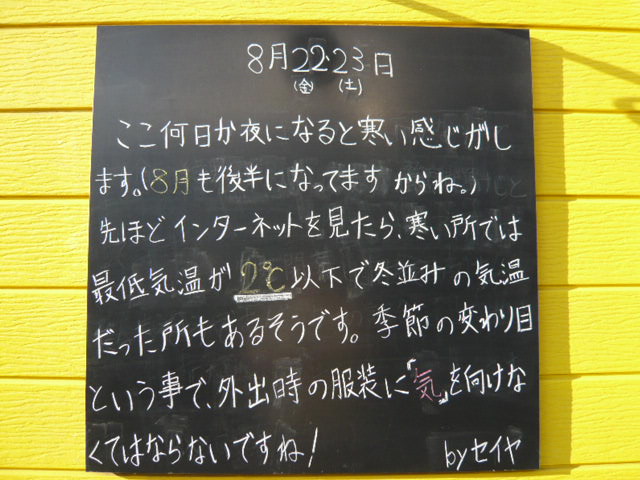 8月22・23日
(金) (土)
ここ何日か夜になると寒い感じがし
ます。(8月も後半になってますからね。)
先ほどインターネットを見たら、寒い所では
最低気温が2℃以下で冬並みの気温
だった所もあるそうです。季節の変わり目
という事で、外出時の服装に「気」を向けな
くてはならないですね!
byセイヤ